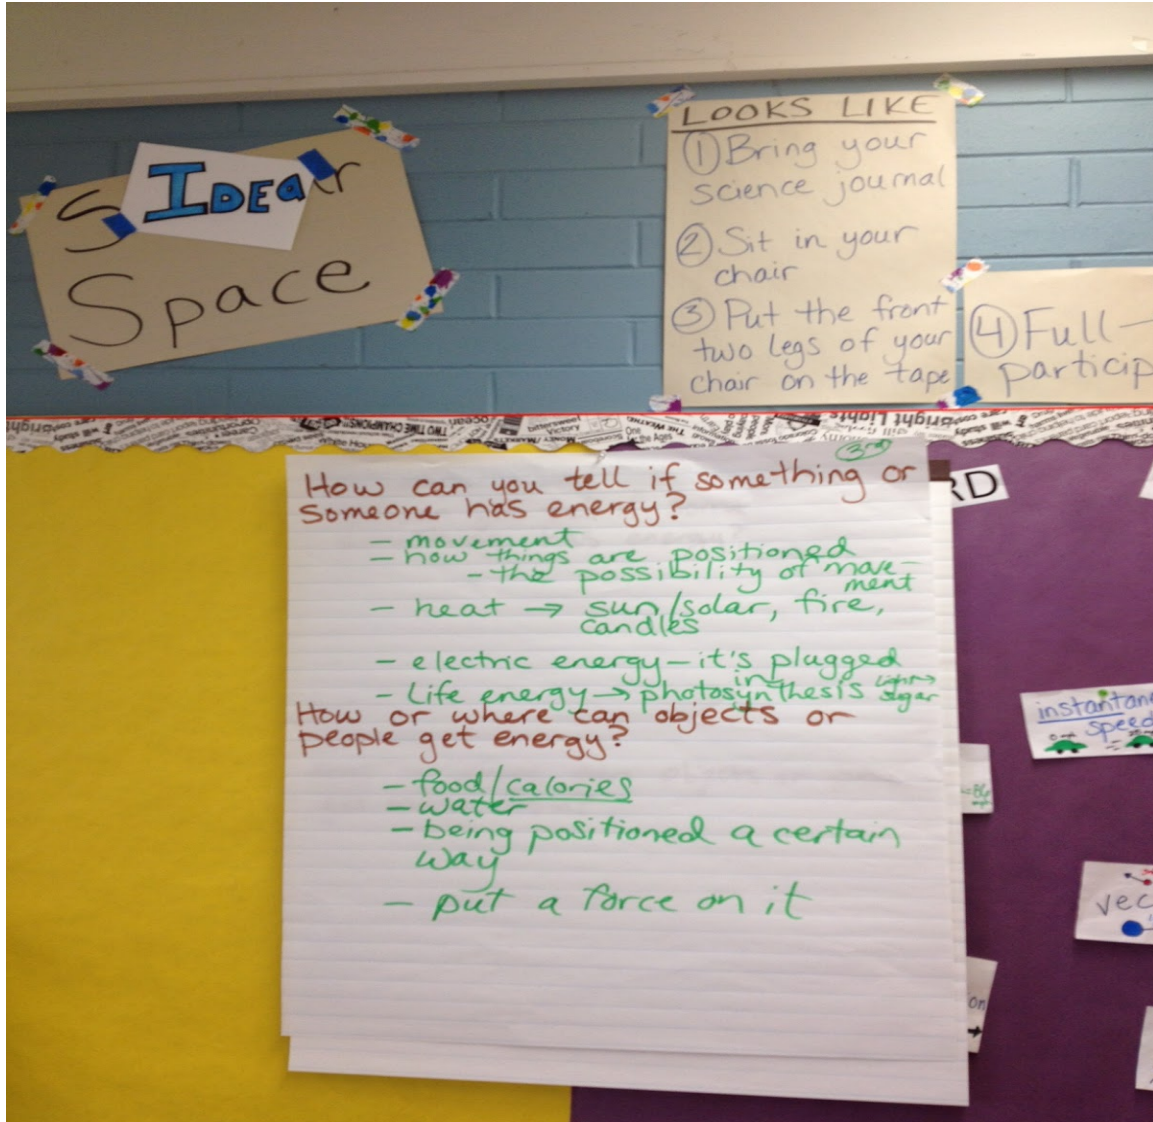 S IDEA r
Space
LOOKS LIKE
① Bring your
science journal
② Sit in your
chair
③ Put the front
two legs of your
chair on the tape
④ Full-
particip
TWO TIME CHAMPIONS
ocean
Victory
Bright Lights
3rd
How can you tell if something or
someone has energy?
- movement
- how things are positioned
- the possibility of move-
ment
- heat → sun/solar, fire,
candles
- electric energy - it's plugged
in
- Life energy → photosynthesis light→
sugar
How or where can objects or
people get energy?
- food/calories
- water
- being positioned a certain
way
- put a force on it
RD
instantane
speed
vec
on